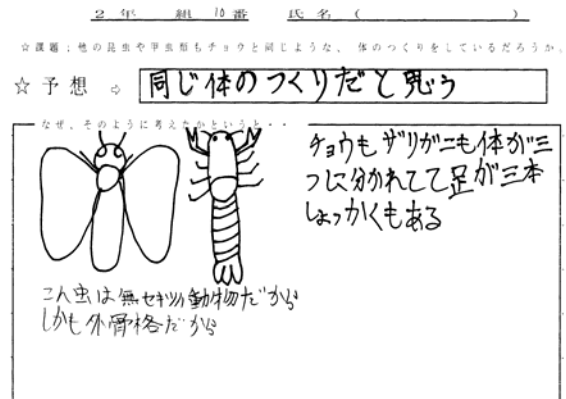 2年 組 10番 氏名（ ）
☆課題；他の昆虫や甲虫類もチョウと同じような、体のつくりをしているだろうか。
☆予想 ⇨ 同じ体のつくりだと思う
なぜ、そのように考えたかというと・・
チョウもザリガニも体が三
つに分かれてて足が三本
しょっかくもある
こん虫は無セキツイ動物だから
しかも外骨格だから